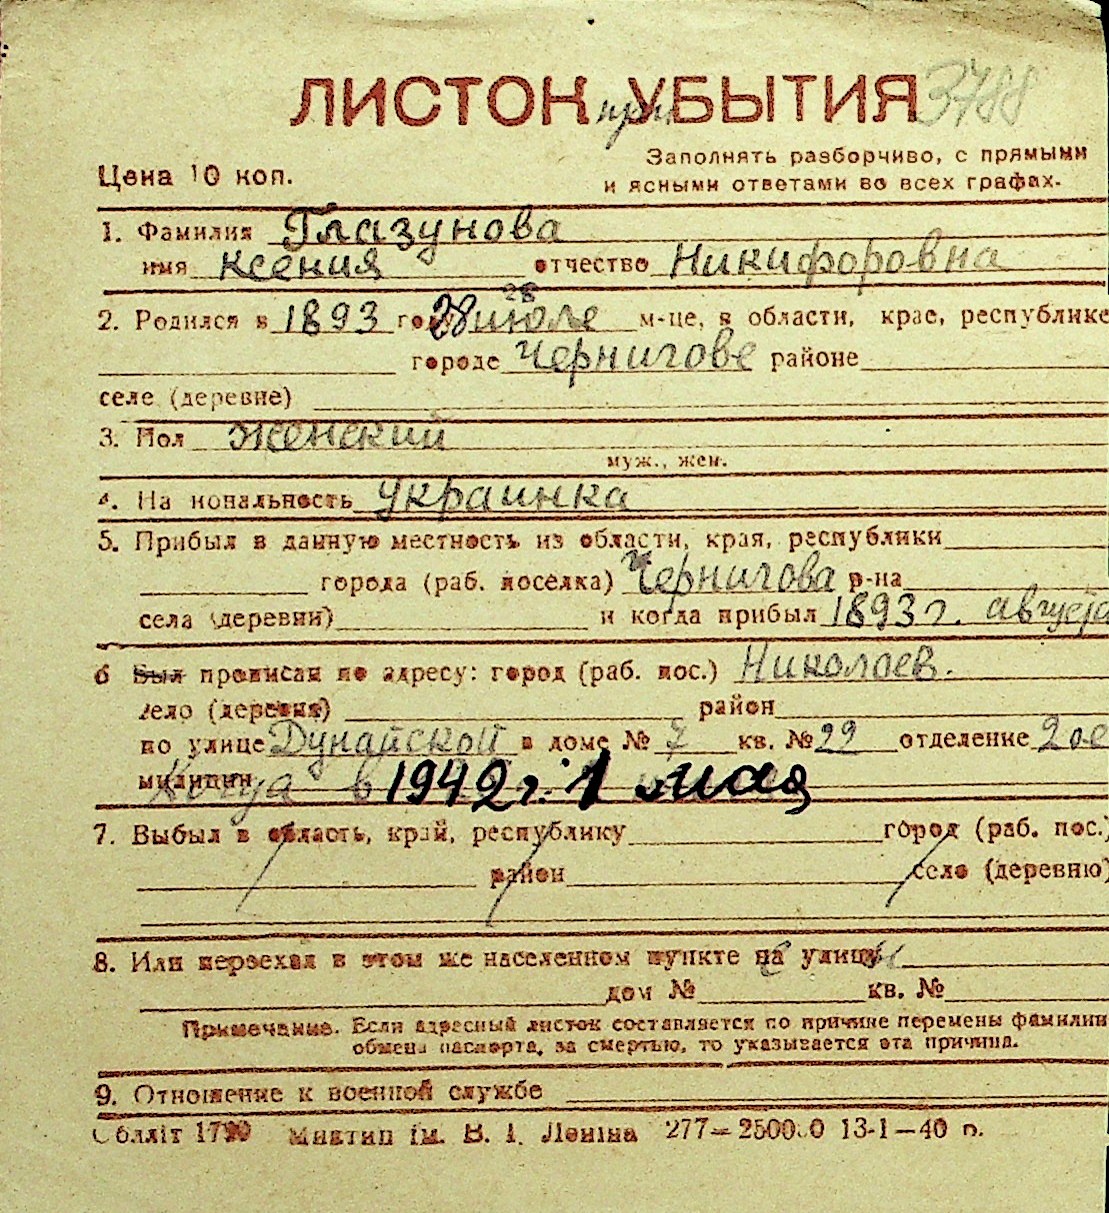 ЛИСТОК при УБЫТИЯ 3788
Цена 10 коп.
Заполнять разборчиво, с прямыми
и ясными ответами во всех графах.
1. Фамилия Глазунова
имя Ксения отчество Никифоровна
28
2. Родился в 1893 году 28 июле м-це, в области, крае, республике
городе Чернигове районе
селе (деревне)
3. Пол Женский
муж., жен.
4. На иональность Украинка
5. Прибыл в данную местность из области, края, республики
города (раб. поселка) Чернигова р-на
села (деревни) и когда прибыл 1893 г. августа
6 Был прописан по адресу: город (раб. пос.) Николаев.
село (деревня) район
по улице Дунайской в доме № 7 кв. № 22 отделение 2ое
милиции Когда в 1942 г. 1 мая
7. Выбыл в область, край, республику город (раб. пос.)
район село (деревню)
8. Или переехал в этом же населенном пункте на улицу
дом № кв. №
Примечание. Если адресный листок составляется по причине перемены фамилии
обмена паспорта, за смертью, то указывается эта причина.
9. Отношение к военной службе
Облліт 1790 Миктип ім. В. І. Леніна 277—250000 13-1—40 р.